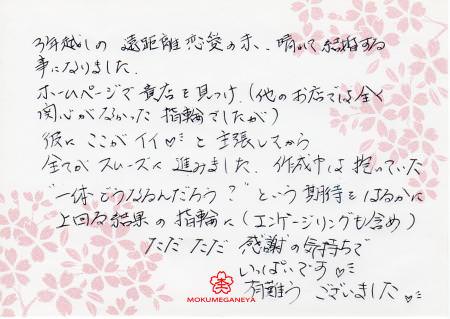 3年越しの 遠距離恋愛の末、晴れて結婚する
事になりました.
ホームページで貴店を見つけ.(他のお店では全く
関心がなかった 指輪でしたが)
彼に ここが イイ♡ と 主張してから
全てが スムーズに 進みました. 作成中は 抱いていた
"一体どうなるんだろう?" という 期待を はるかに
上回る 結果の 指輪に (エンゲージリングも含め)
ただ ただ 感謝の気持ちで
いっぱいです♡
有難う ございました♡
MOKUMEGANEYA